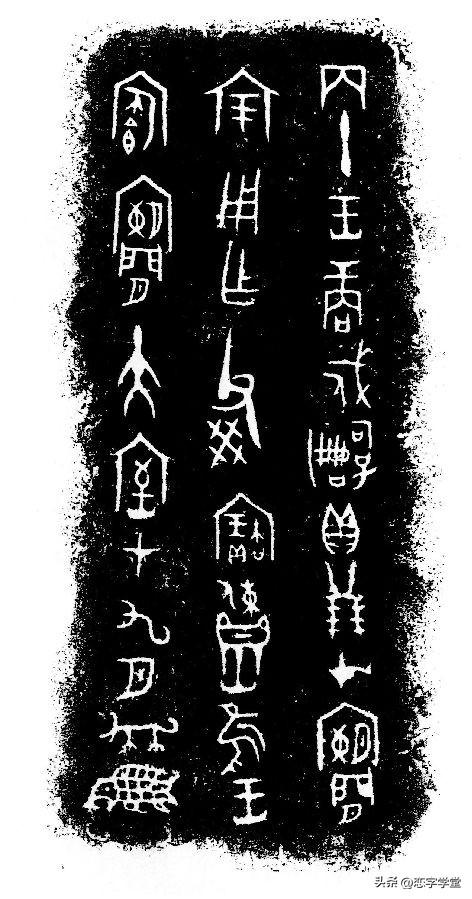 丙午王商戍嗣子貝廿朋才闌
宗用乍父癸寶餗隹王
闌大室才九月犬魚
头条 @恋字学堂